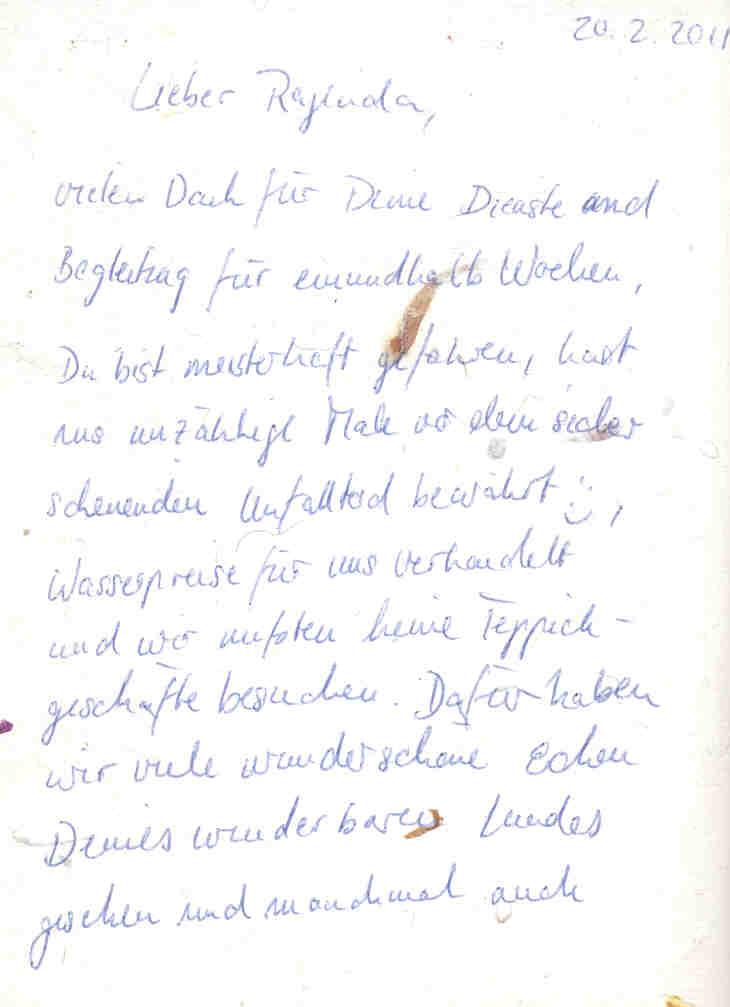 20.2.2011
Lieber Rajinda,
vielen Dank für Deine Dienste und
Begleitung für einundhalb Wochen,
Du bist meisterhaft gefahren, hast
uns unzählige Male vor dem sicher
scheinenden Unfalltod bewahrt :),
Wasserpreise für uns verhandelt
und wir mußten keine Teppich-
geschäfte besuchen. Dafür haben
wir viele wunderschöne Ecken
Deines wunderbaren Landes
gesehen und manchmal auch